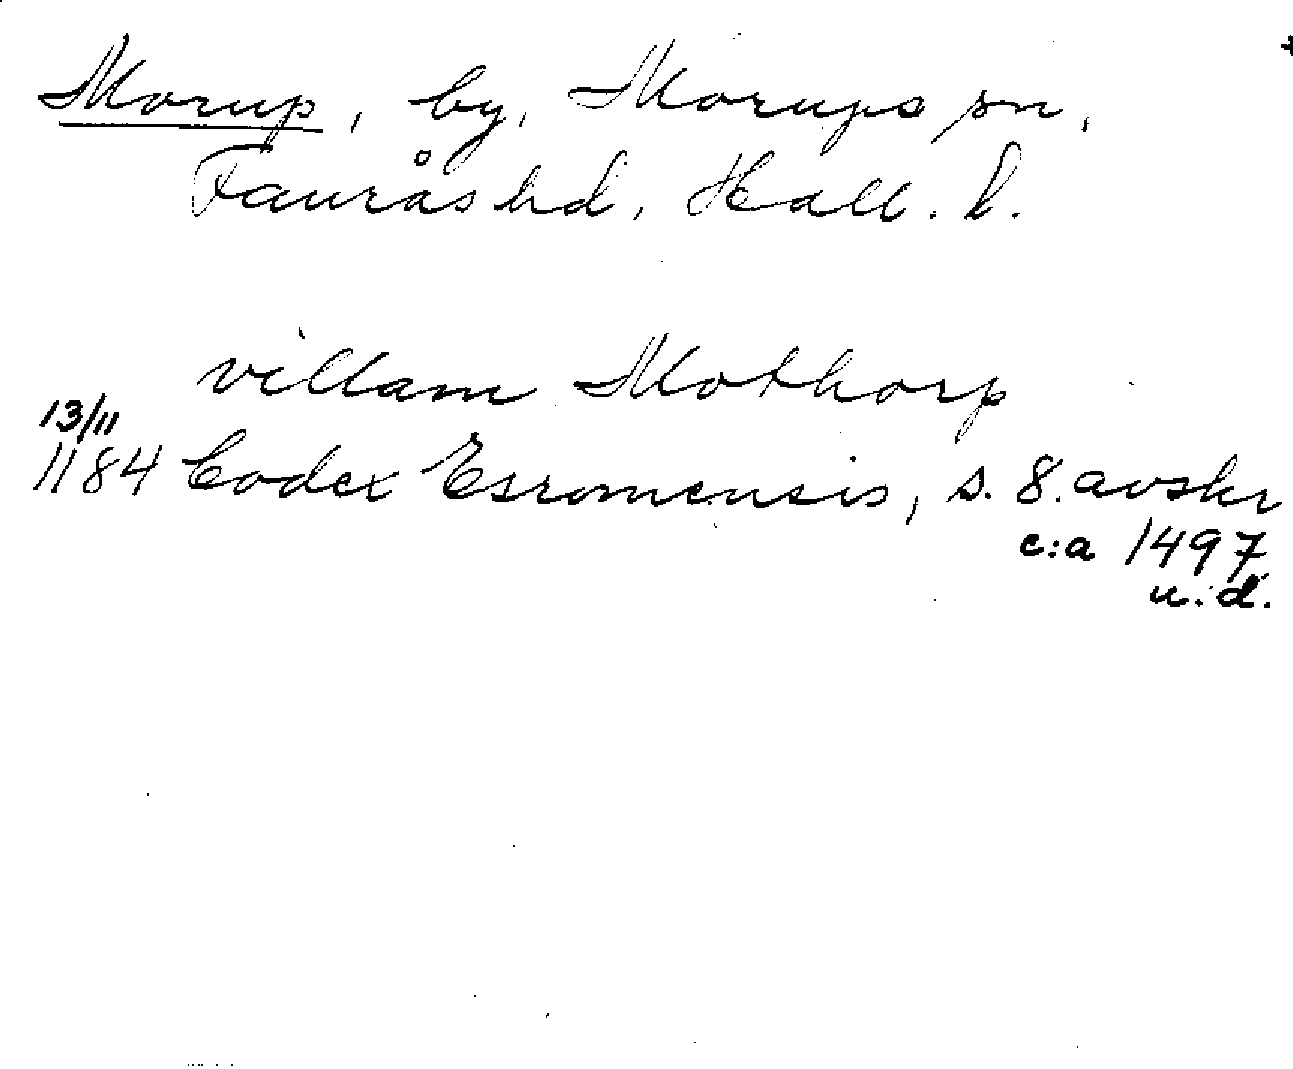 Morup, by, Morups sn,
Faurås hd, Hall. l.
villam Mothorp
13/11
1184 Codex Esromensis, s. 8. avskr
c:a 1497
u.d.